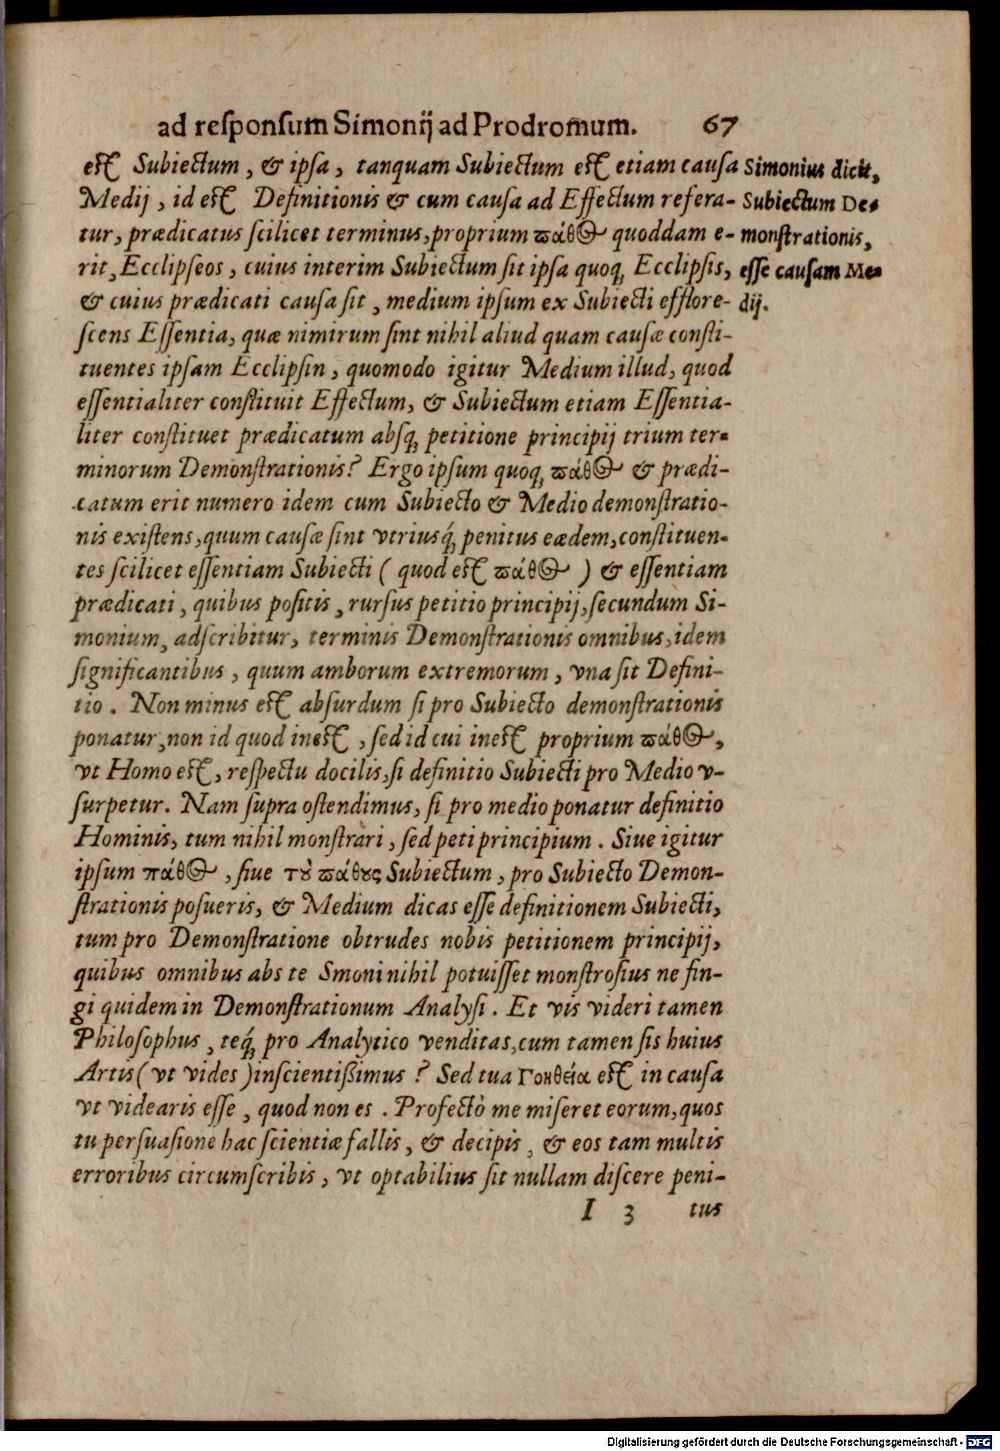 ad responsum Simonij ad Prodromum. 67
est Subiectum, & ipsa, tanquam Subiectum est etiam causa
Medij, id est Definitionis & cum causa ad Effectum refera-
tur, prædicatus scilicet terminus, proprium ϖάθ〇 quoddam e-
rit, Ecclipseos, cuius interim Subiectum sit ipsa quoq; Ecclipsis,
& cuius prædicati causa sit, medium ipsum ex Subiecti efflore-
scens Essentia, quæ nimirum sint nihil aliud quam causæ consti-
tuentes ipsam Ecclipsin, quomodo igitur Medium illud, quod
essentialiter constituit Effectum, & Subiectum etiam Essentia-
liter constituet prædicatum absq; petitione principij trium ter-
minorum Demonstrationis? Ergo ipsum quoq; ϖάθ〇 & prædi-
catum erit numero idem cum Subiecto & Medio demonstratio-
nis existens, quum causæ sint vtriusq́; penitus eædem, constituen-
tes scilicet essentiam Subiecti ( quod est ϖάθ〇 ) & essentiam
prædicati, quibus positis, rursus petitio principij, secundum Si-
monium, adscribitur, terminis Demonstrationis omnibus, idem
significantibus, quum amborum extremorum, vna sit Defini-
tio. Non minus est absurdum si pro Subiecto demonstrationis
ponatur, non id quod inest, sed id cui inest proprium ϖάθ〇,
vt Homo est, respectu docilis, si definitio Subiecti pro Medio v-
surpetur. Nam supra ostendimus, si pro medio ponatur definitio
Hominis, tum nihil monstrari, sed peti principium. Siue igitur
ipsum πάθ〇, siue τȣ͂ ϖάθȣς Subiectum, pro Subiecto Demon-
strationis posueris, & Medium dicas esse definitionem Subiecti,
tum pro Demonstratione obtrudes nobis petitionem principij,
quibus omnibus abs te Smoni nihil potuisset monstrosius ne fin-
gi quidem in Demonstrationum Analysi. Et vis videri tamen
Philosophus, teq́; pro Analytico venditas, cum tamen sis huius
Artis ( vt vides ) inscientißimus? Sed tua Γοηθεία est in causa
vt videaris esse, quod non es. Profectò me miseret eorum, quos
tu persuasione hac scientiæ fallis, & decipis, & eos tam multis
erroribus circumscribis, vt optabilius sit nullam discere peni-
I 3 tus
Simonius dicit,
Subiectum De-
monstrationis,
esse causam Me-
dij.
Digitalisierung gefördert durch die Deutsche Forschungsgemeinschaft - DFG